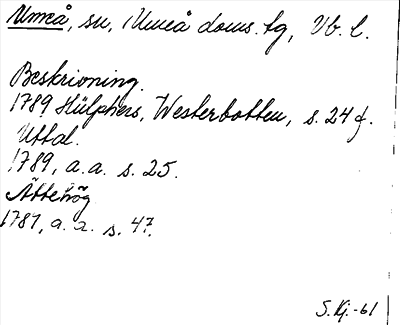 Umeå, sn, Umeå doms. tg, Vb. l.
Beskrivning.
1789 Hülphers, Westerbotten, s. 24 f.
Uttal.
1789, a.a. s. 25.
Ättehög
1789, a.a. s. 47.
S. Kj. -61